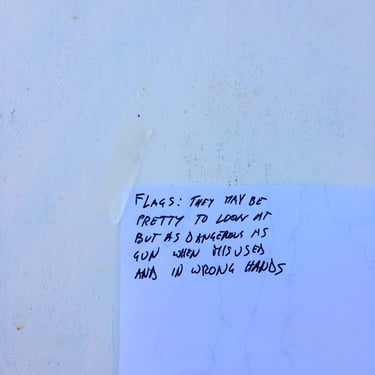 FLAGS: THEY MAY BE
PRETTY TO LOOK AT
BUT AS DANGEROUS AS
GUN WHEN MISUSED
AND IN WRONG HANDS